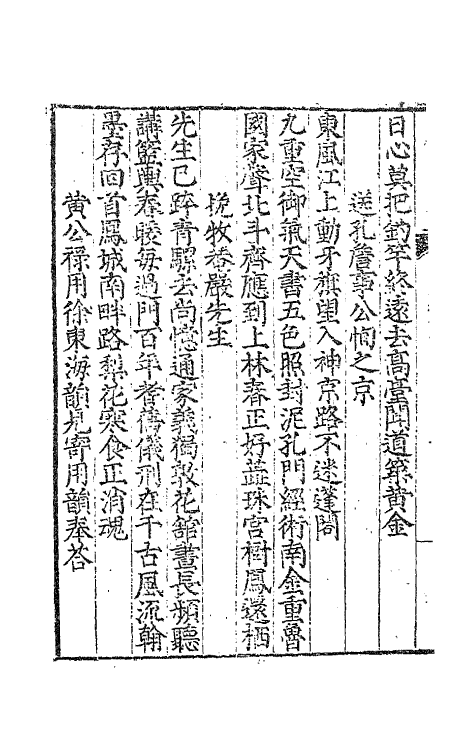 日心莫把釣竿終遠去高臺聞道築黃金
送孔詹事公恂之京
東風江上動牙旗望入神京路不迷蓬閣
九重空御氣天書五色照封泥孔門經術南金重魯
國家聲北斗齊應到上林春正好蘂珠宮樹鳳還栖
挽牧菴嚴先生
先生已跨青騾去尚憶通家義獨敦花舘晝長頻聽
講籃輿春晚每過門百年耆舊儀刑在千古風流翰
墨存回首馬城南畔路梨花寒食正消魂
黄公禄用徐東海韻見寄用韻奉答